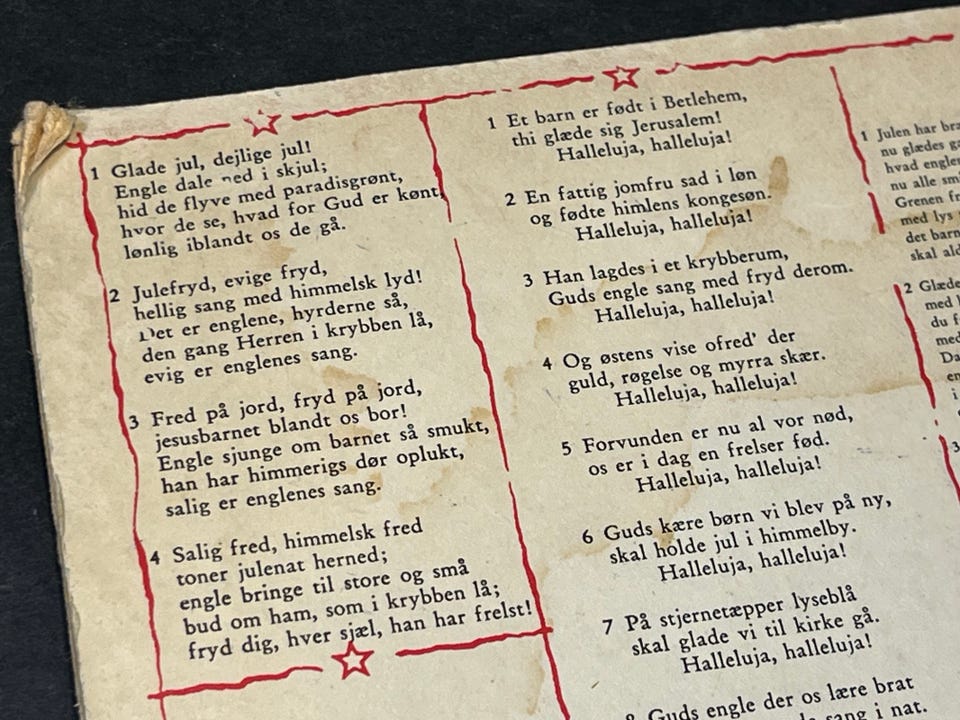 1 Glade jul, dejlige jul!
Engle dale ned i skjul;
hid de flyve med paradisgrønt,
hvor de se, hvad for Gud er kønt,
lønlig iblandt os de gå.
2 Julefryd, evige fryd,
hellig sang med himmelsk lyd!
Det er englene, hyrderne så,
den gang Herren i krybben lå,
evig er englenes sang.
3 Fred på jord, fryd på jord,
jesusbarnet blandt os bor!
Engle sjunge om barnet så smukt,
han har himmerigs dør oplukt,
salig er englenes sang.
4 Salig fred, himmelsk fred
toner julenat herned;
engle bringe til store og små
bud om ham, som i krybben lå;
fryd dig, hver sjæl, han har frelst!
1 Et barn er født i Betlehem,
thi glæde sig Jerusalem!
Halleluja, halleluja!
2 En fattig jomfru sad i løn
og fødte himlens kongesøn.
Halleluja, halleluja!
3 Han lagdes i et krybberum,
Guds engle sang med fryd derom.
Halleluja, halleluja!
4 Og østens vise ofred' der
guld, røgelse og myrra skær.
Halleluja, halleluja!
5 Forvunden er nu al vor nød,
os er i dag en frelser fød.
Halleluja, halleluja!
6 Guds kære børn vi blev på ny,
skal holde jul i himmelby.
Halleluja, halleluja!
7 På stjernetæpper lyseblå
skal glade vi til kirke gå.
Halleluja, halleluja!
8 Guds engle der os lære brat
sang i nat.
1 Julen har
nu glædes
hvad
nu alle
Grenen
med lys
det barn
skal
2
med
du
3